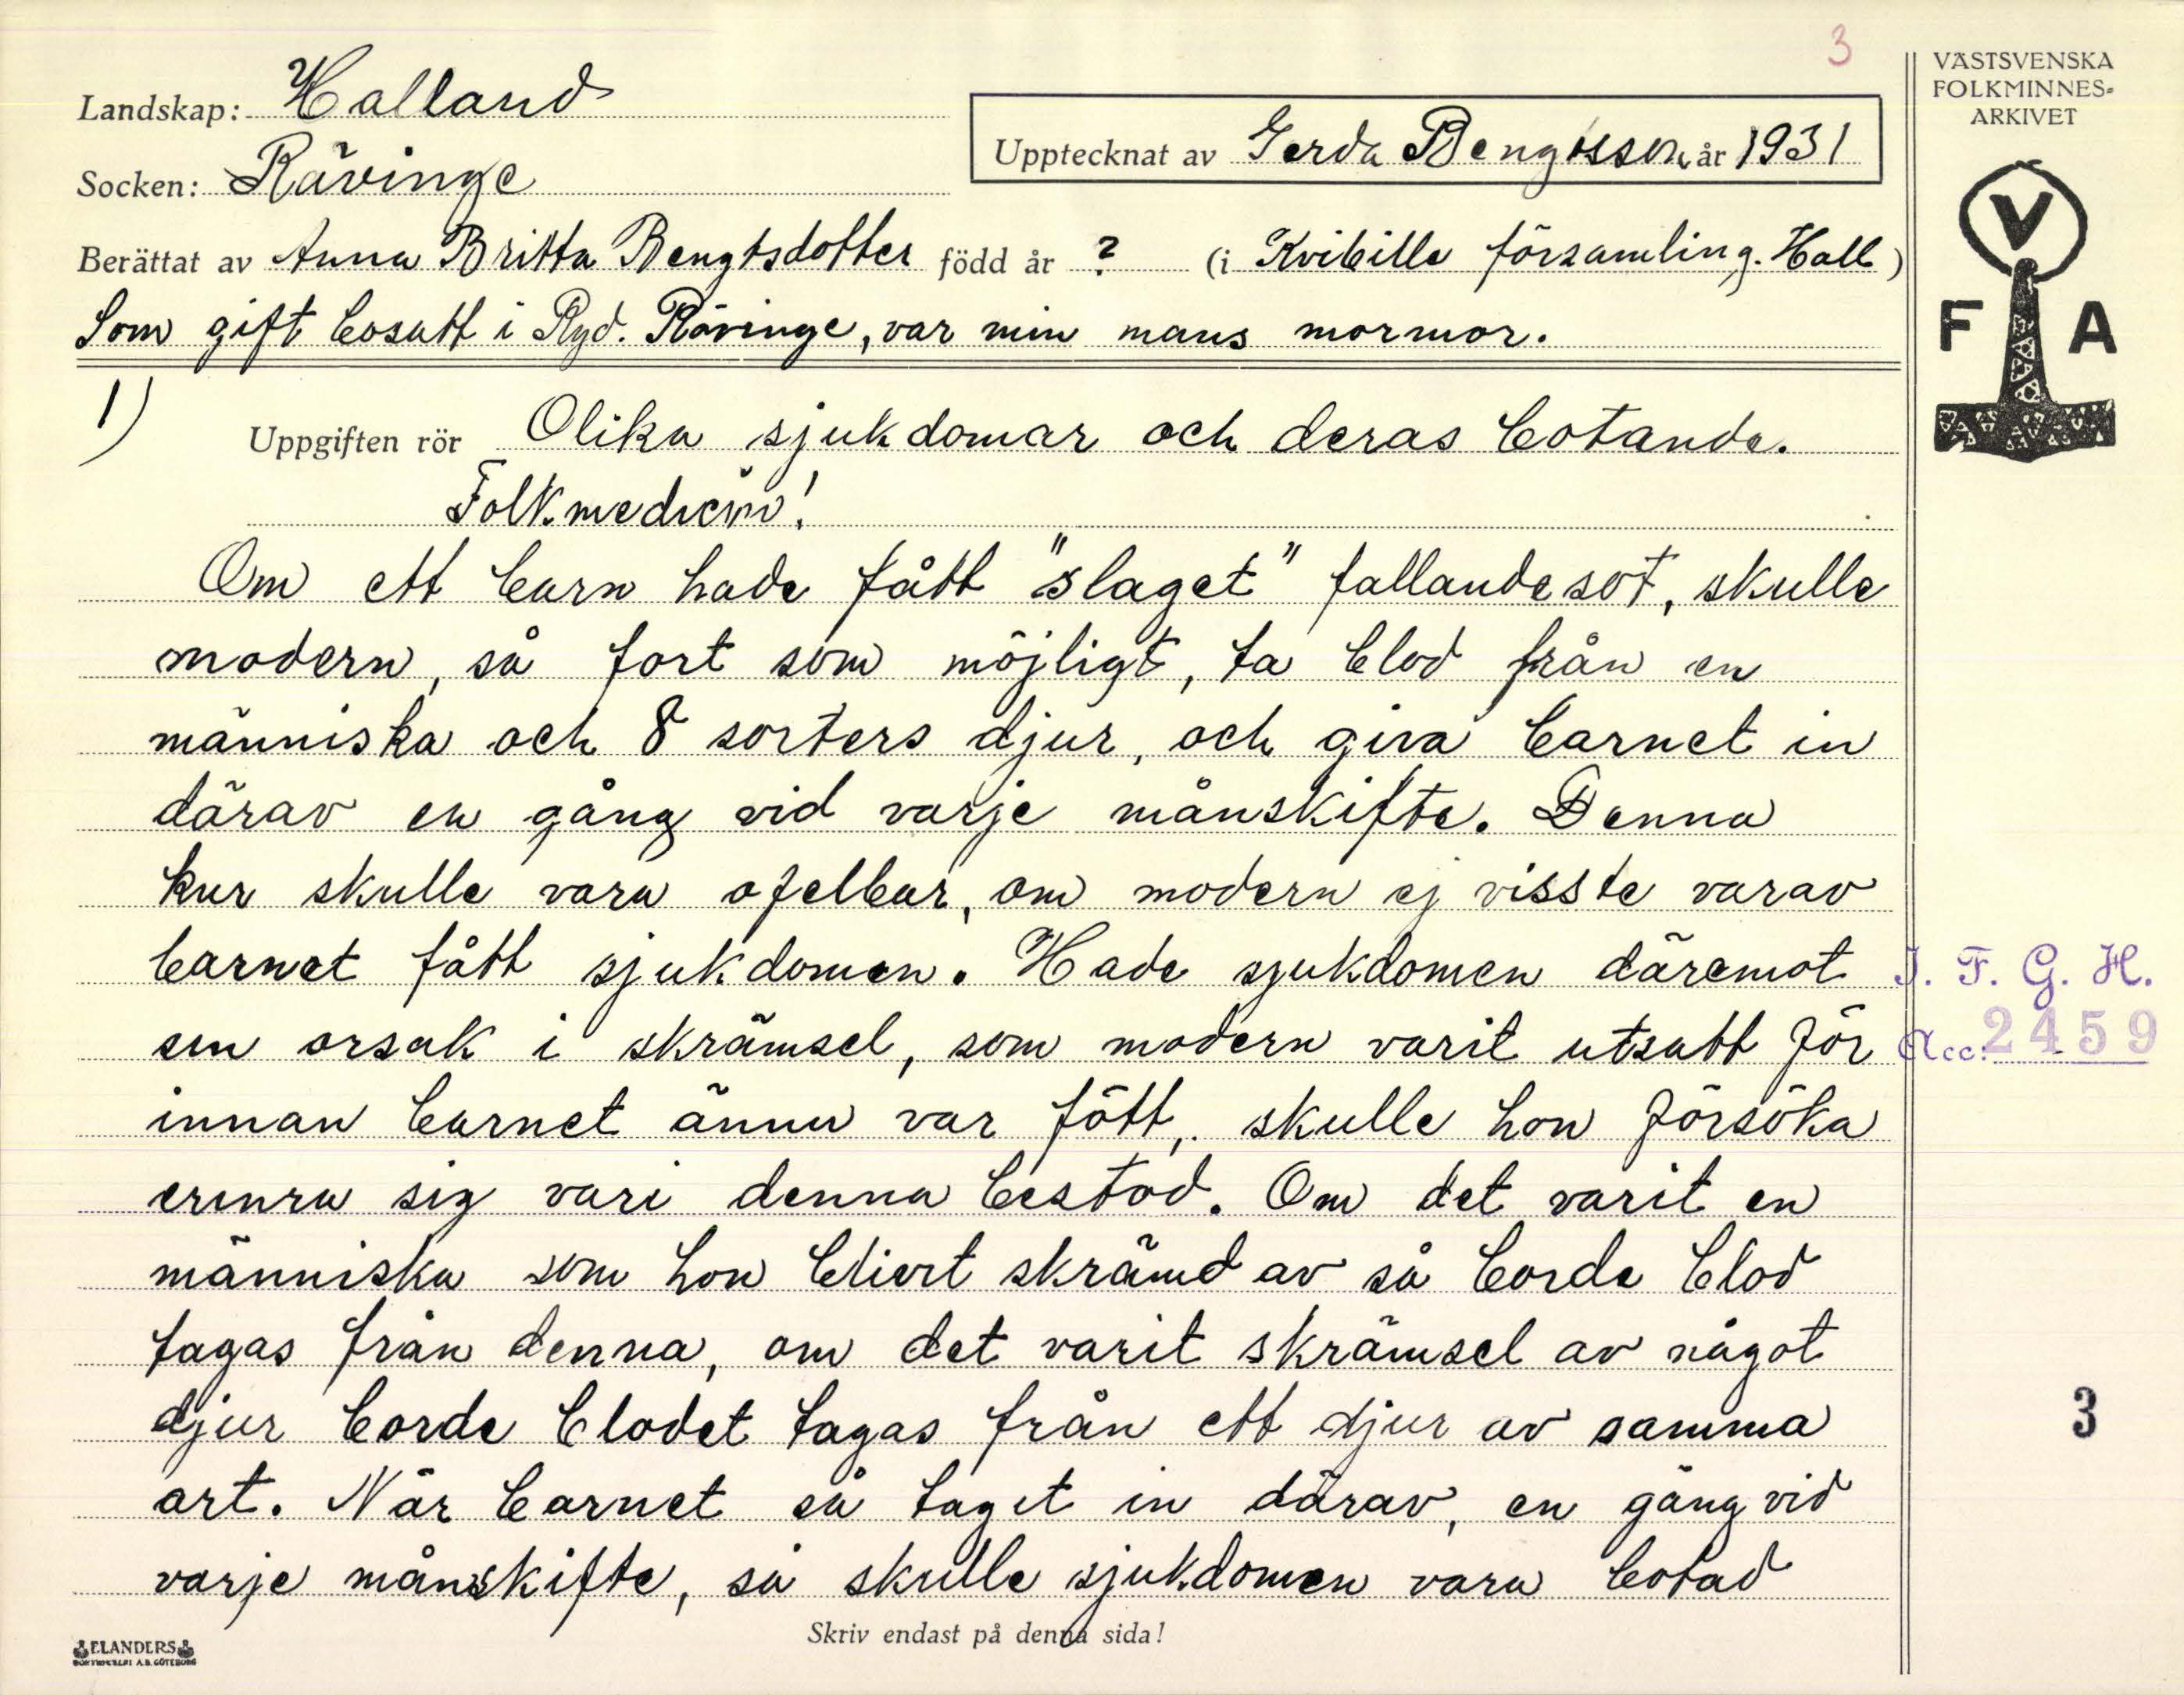 3
VÄSTSVENSKA
FOLKMINNES-
ARKIVET
Landskap: Halland
Upptecknat av Gerda Bengtsson år 1931
Socken: Rävinge
Berättat av Anna Britta Bengtsdotter född år ? (i Kvibille församling. Hall)
Som gift bosatt i Ryd. Rävinge, var min mans mormor.
V
F A
1)
Uppgiften rör Olika sjukdomar och deras botande.
Folkmedicin!
Om ett barn hade fått "slaget" fallandesot, skulle
modern, så fort som möjligt, ta blod från en
människa och 8 sorters djur, och giva barnet in
därav en gång vid varje månskifte. Denna
kur skulle vara ofelbar, om modern ej visste varav
barnet fått sjukdomen. Hade sjukdomen däremot
sin orsak i skrämsel, som modern varit utsatt för
innan barnet ännu var fött, skulle hon försöka
erinra sig vari denna bestod. Om det varit en
människa som hon blivit skrämd av så borde blod
tagas från denna, om det varit skrämsel av något
djur borde blodet tagas från ett djur av samma
art. När barnet så tagit in därav, en gång vid
varje månskifte, så skulle sjukdomen vara botad
I. F. G. H.
Acc: 2459
3
Skriv endast på denna sida!
ELANDERS
BOKTRYCKERI A.B. GÖTEBORG